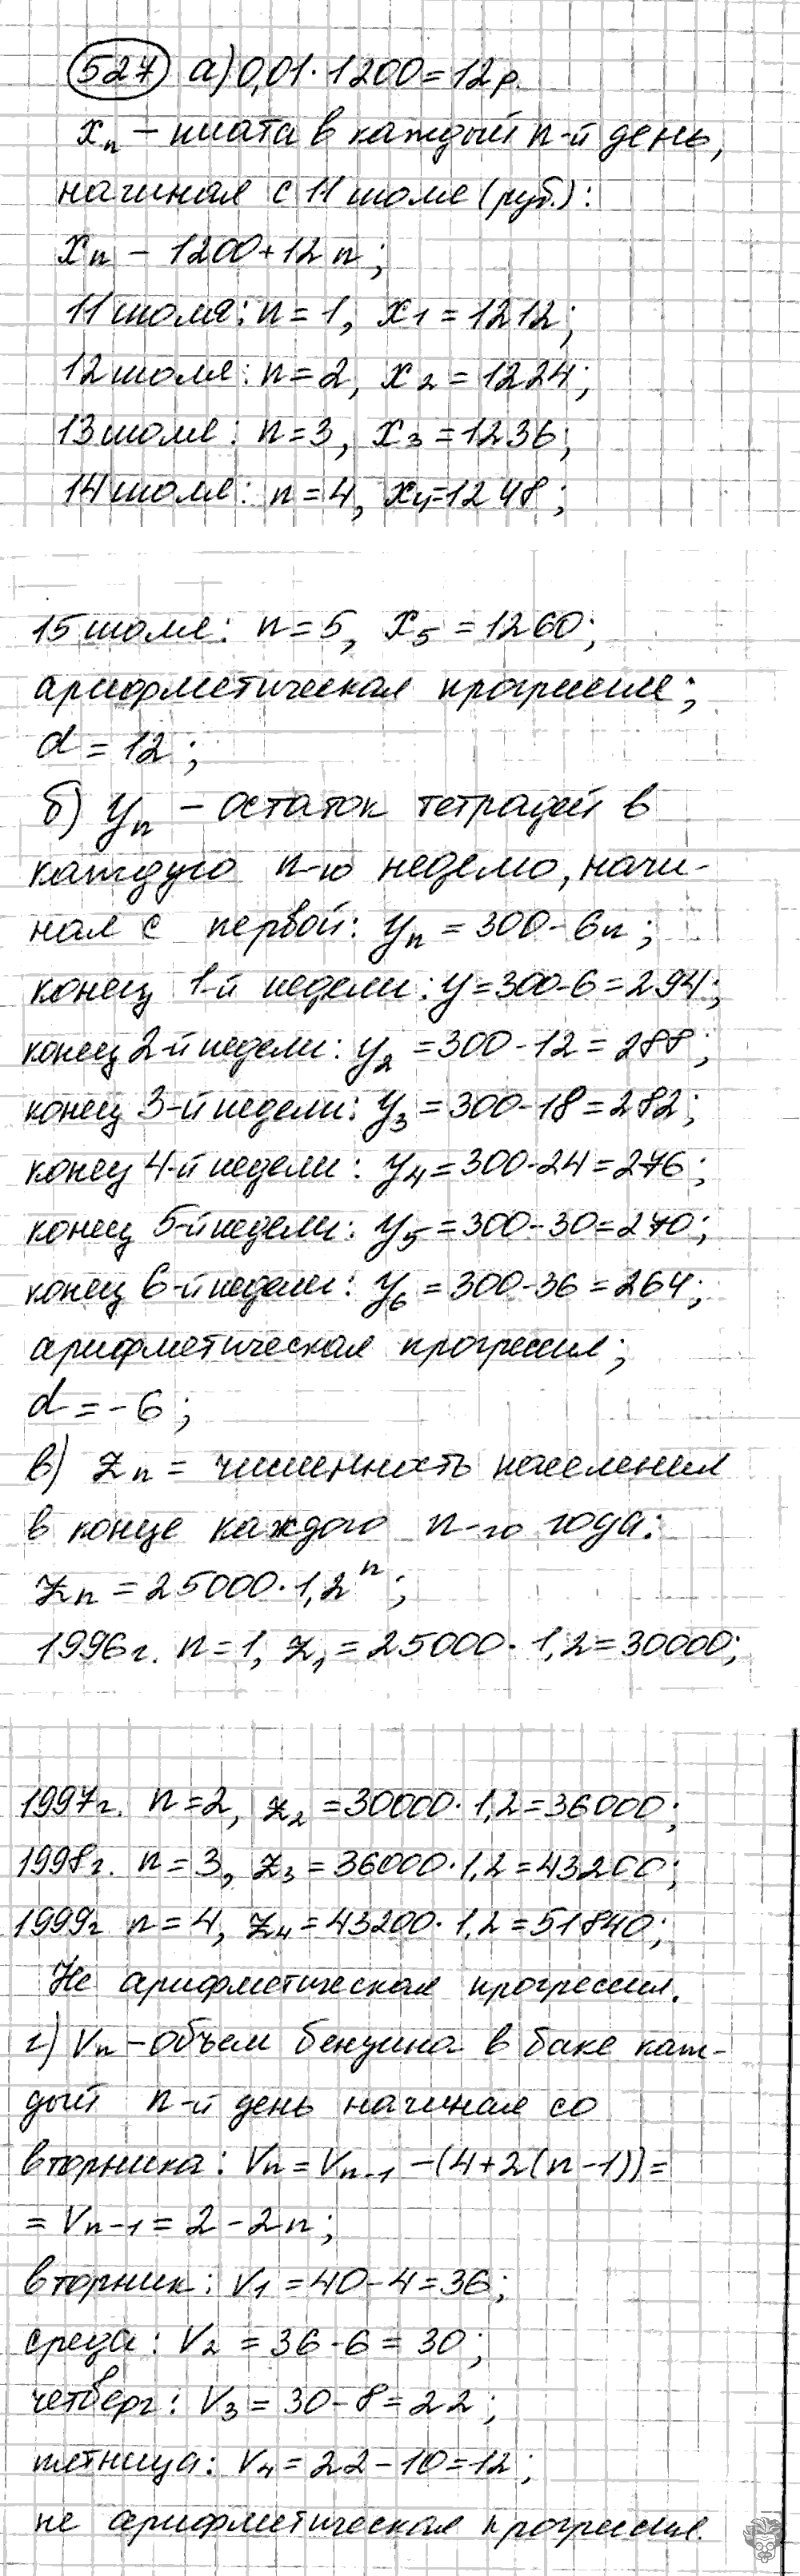 527 а) 0,01·1200=12 р.
xₙ – плата в каждый n-й день,
начиная с 11 июля (руб.):
xₙ – 1200+12n;
11 июля: n=1, x₁=1212;
12 июля: n=2, x₂=1224;
13 июля: n=3, x₃=1236;
14 июля: n=4, x₄=1248;
15 июля: n=5, x₅=1260;
арифметическая прогрессия;
d=12;
б) yₙ – остаток тетрадей в
каждую n-ю неделю, начи-
ная с первой: yₙ=300-6n;
конец 1-й недели: y=300-6=294;
конец 2-й недели: y₂=300-12=288;
конец 3-й недели: y₃=300-18=282;
конец 4-й недели: y₄=300-24=276;
конец 5-й недели: y₅=300-30=270;
конец 6-й недели: y₆=300-36=264;
арифметическая прогрессия;
d=-6;
в) zₙ= численность населения
в конце каждого n-го года:
zₙ=25000·1,2ⁿ;
1996г. n=1, z₁=25000·1,2=30000;
1997г. n=2, z₂=30000·1,2=36000;
1998г. n=3, z₃=36000·1,2=43200;
1999г n=4, z₄=43200·1,2=51840;
Не арифметическая прогрессия.
г) Vₙ – объем бензина в баке каж-
дый n-й день начиная со
вторника: Vₙ=Vₙ₋₁-(4+2(n-1))=
=Vₙ₋₁=2-2n;
вторник: V₁=40-4=36;
среда: V₂=36-6=30;
четверг: V₃=30-8=22;
пятница: V₄=22-10=12;
не арифметическая прогрессия.